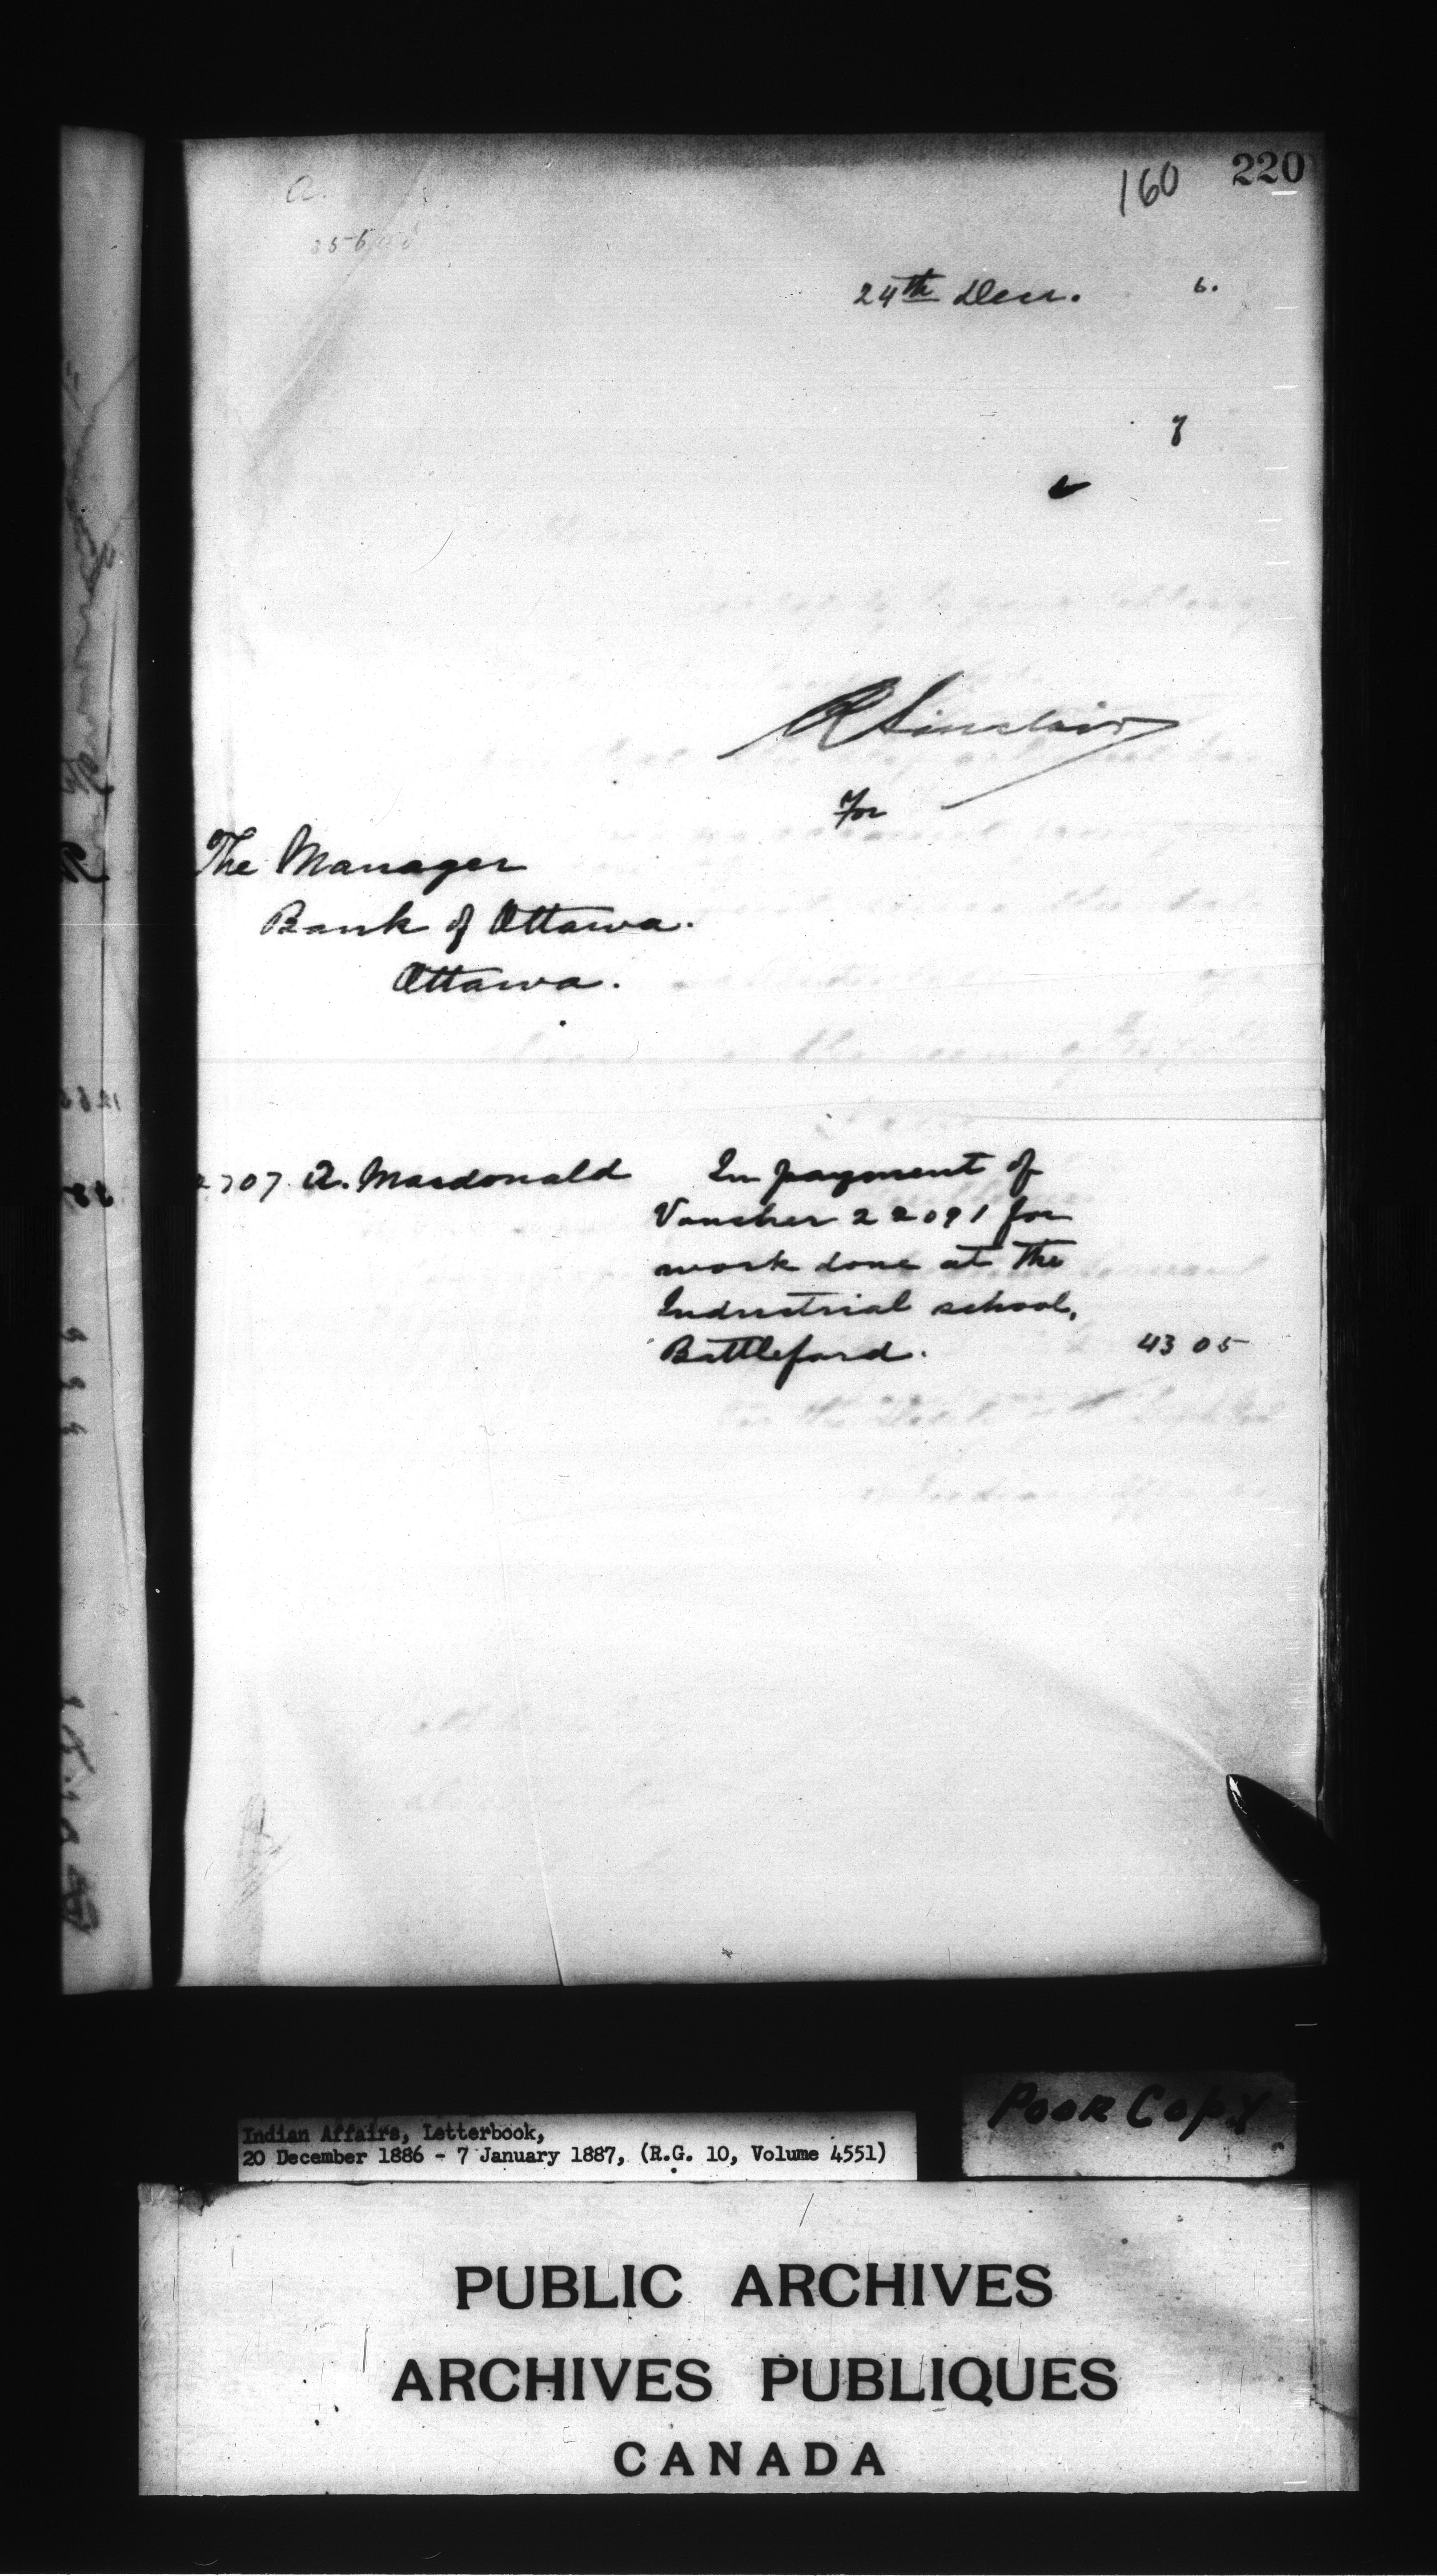 160 220
24th Dec. 6.
7
R Sinclair
For
The Manager
Bank of Ottawa.
Ottawa.
2707 A. Macdonald In payment of
Voucher 22091 for
work done at the
Industrial school,
Battleford. 43 05
Poor Copy
Indian Affairs, Letterbook,
20 December 1886 - 7 January 1887, (R.G. 10, Volume 4551)
PUBLIC ARCHIVES
ARCHIVES PUBLIQUES
CANADA